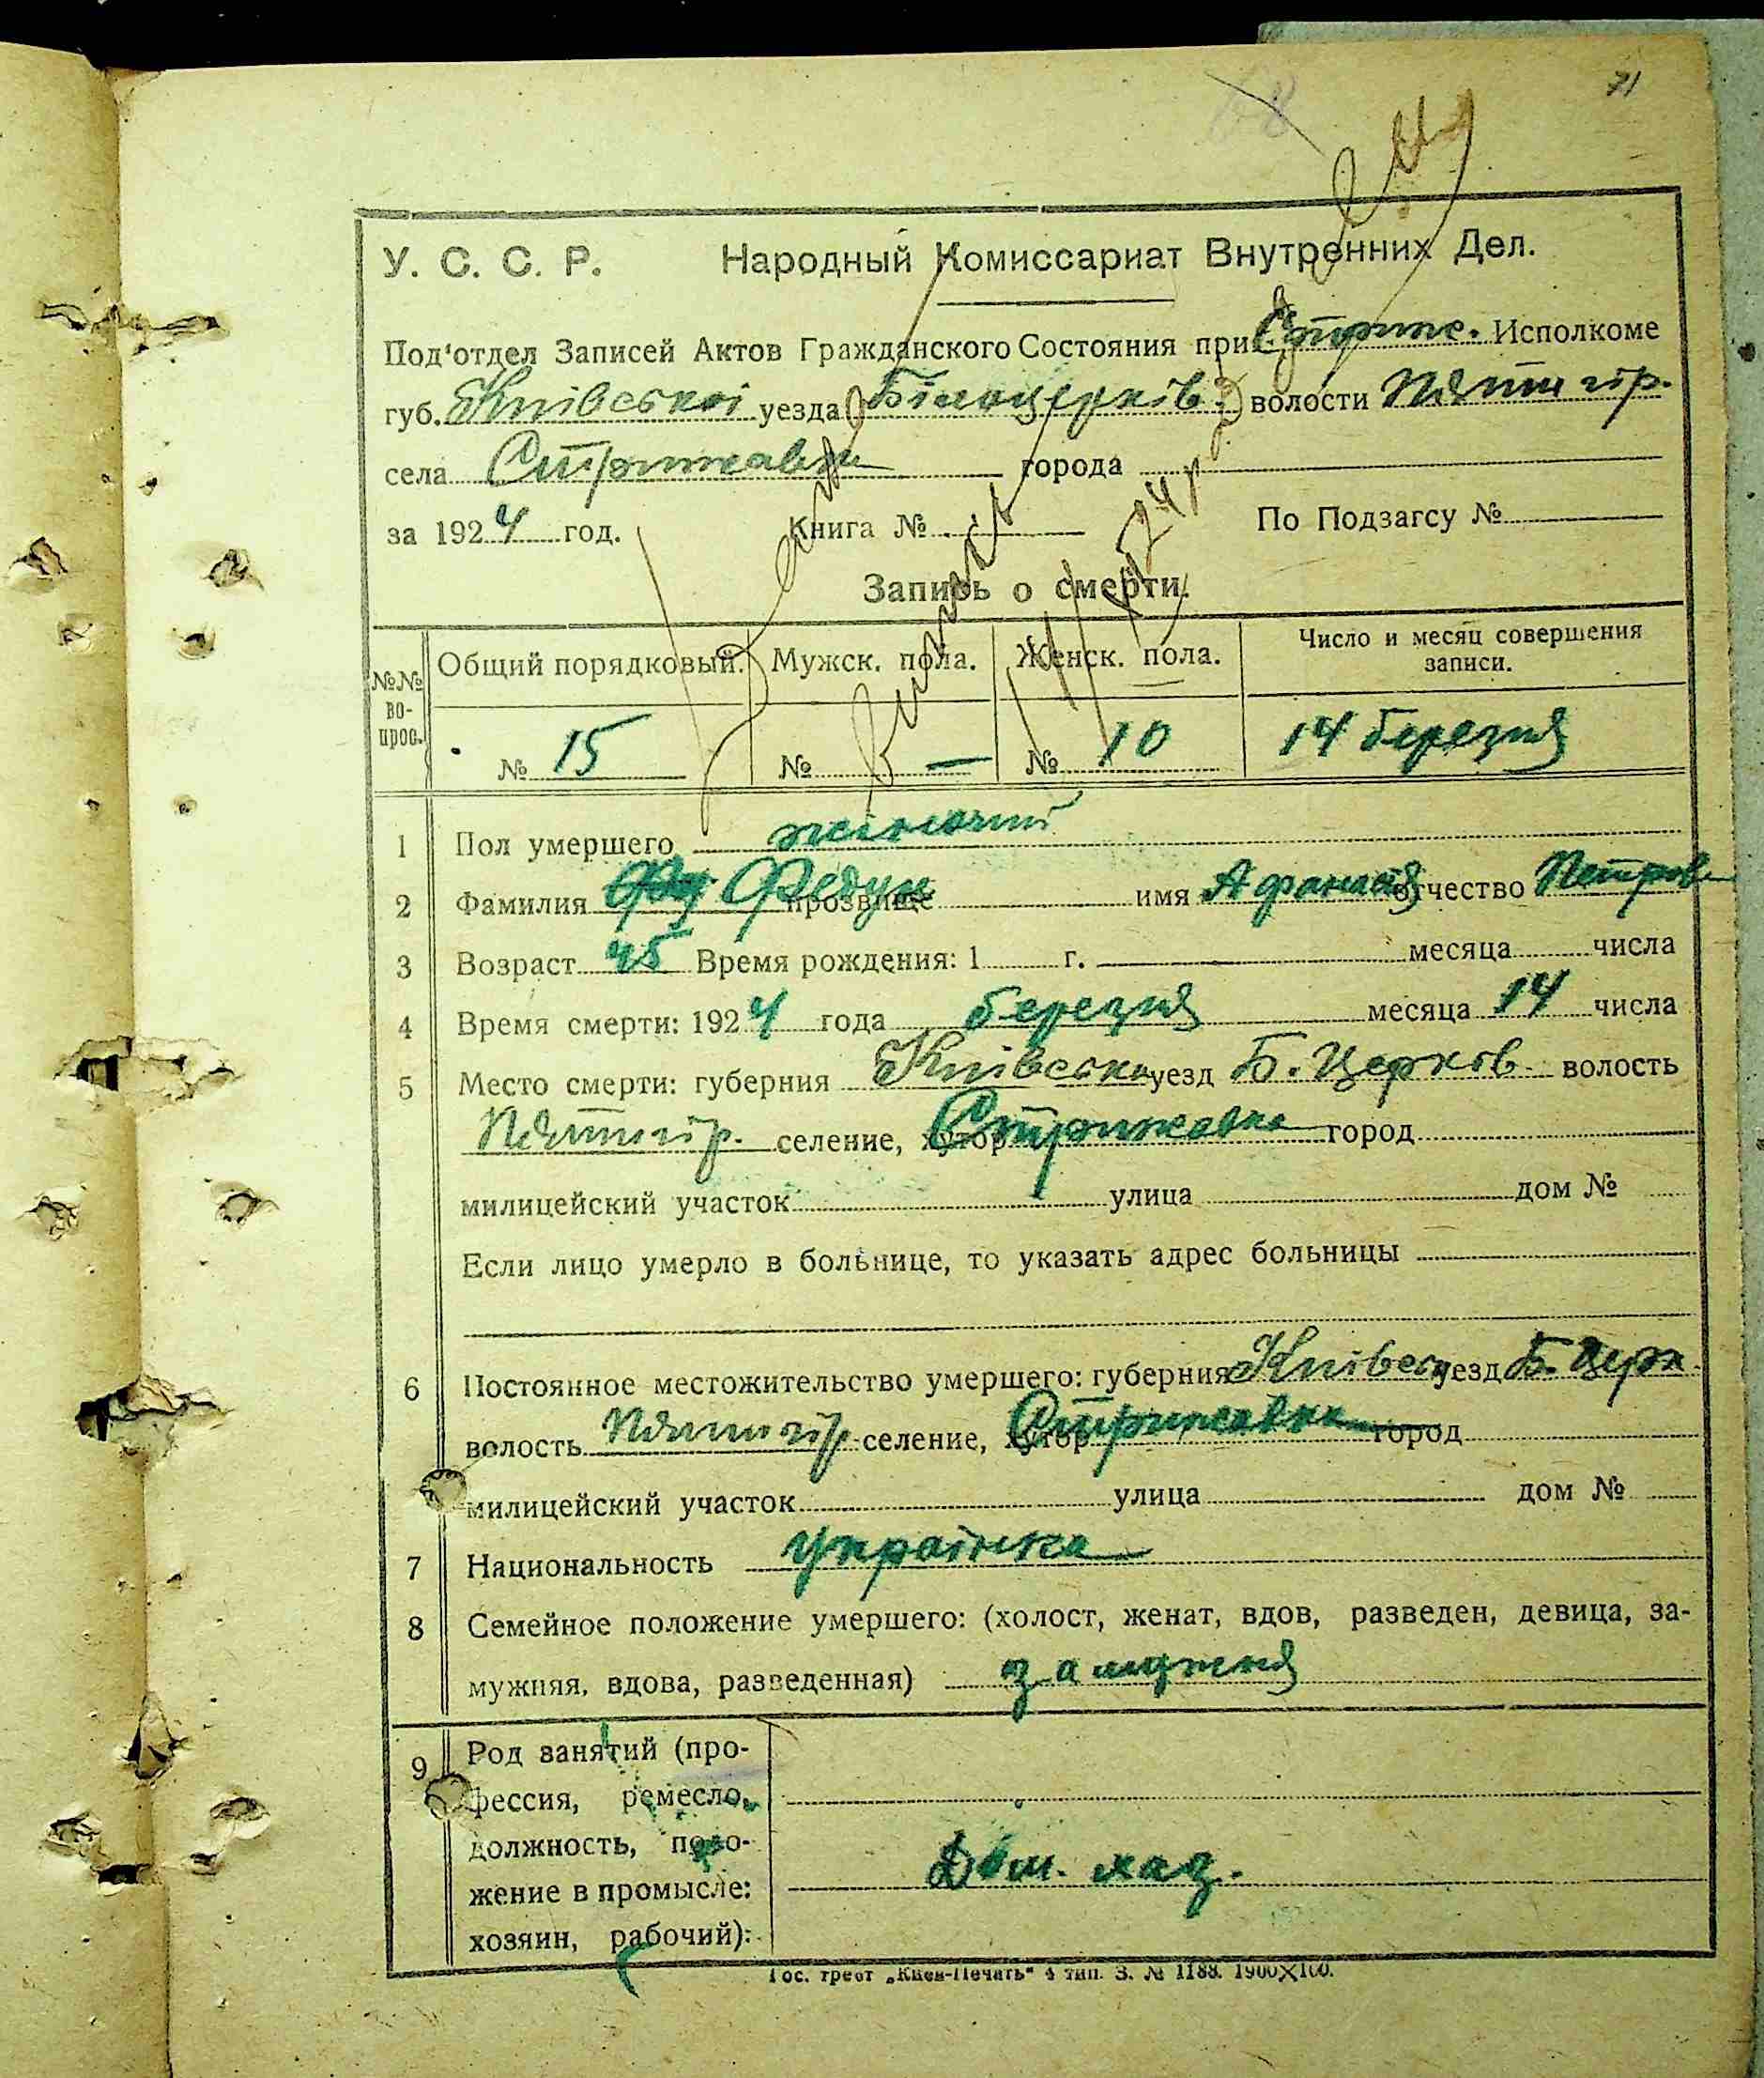 71
68
У. С. С. Р. Народный Комиссариат Внутренних Дел.
Под'отдел Записей Актов Гражданского Состояния при Стриж. Исполкоме
губ. Київської уезда Білоцерків. волости Пятигір.
села Стрижавка города
за 1924 год. Книга № По Подзагсу №
Запись о смерти.
№№ вопрос. Общий порядковый. Мужск. пола. Женск. пола. Число и месяц совершения записи.
№ 15 № — № 10 14 березня
1 Пол умершего жіночий
2 Фамилия Федук прозвище имя Афанасія отчество Петров
3 Возраст 45 Время рождения: 1 г. месяца числа
4 Время смерти: 1924 года березня месяца 14 числа
5 Место смерти: губерния Київська уезд Б. Церков волость
Пятигір. селение, хутор Стрижавка город
милицейский участок улица дом №
Если лицо умерло в больнице, то указать адрес больницы
6 Постоянное местожительство умершего: губерния Київськ уезд Б. Церк.
волость Пятигір селение, хутор Стрижавка город
милицейский участок улица дом №
7 Национальность українка
8 Семейное положение умершего: (холост, женат, вдов, разведен, девица, за-
мужняя, вдова, разведенная) замужня
9 Род занятий (про-
фессия, ремесло,
должность, поло-
жение в промысле: Дом. хаз.
хозяин, рабочий):
Гос. трест „Киев-Печать" 4 тип. З. № 1188. 1900×100.